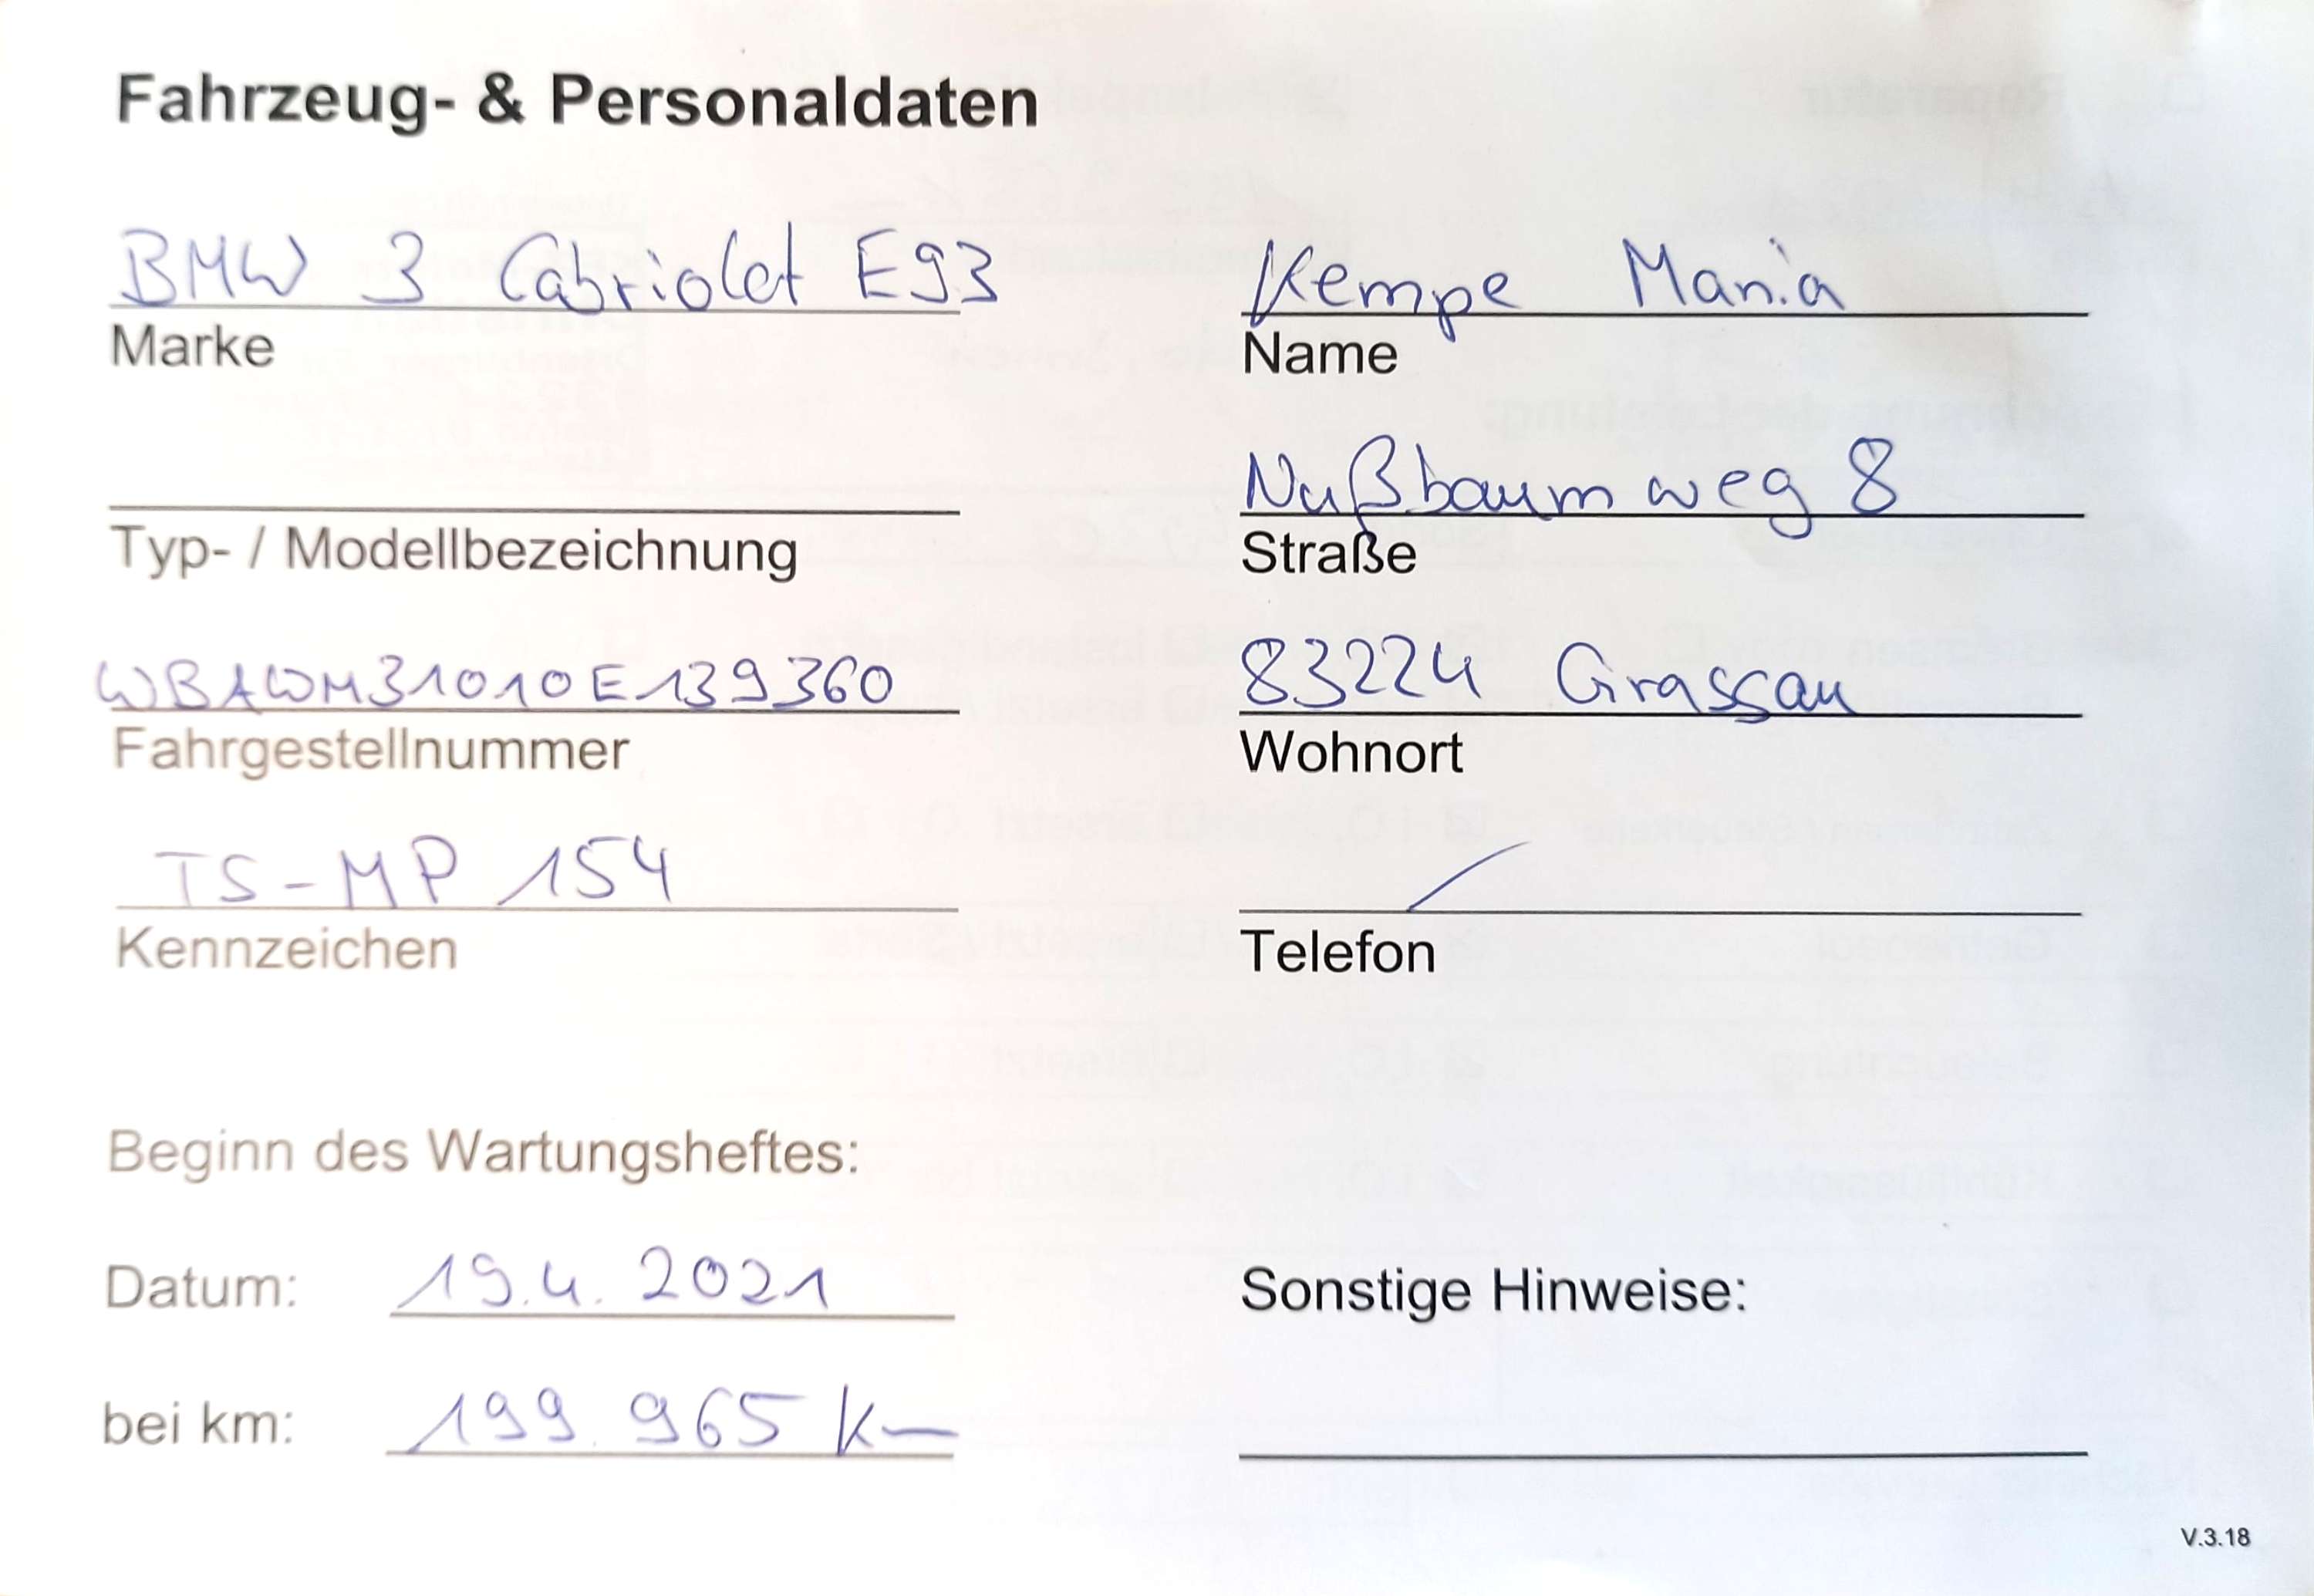 Fahrzeug- & Personaldaten
BMW 3 Cabriolet E93
Marke
Typ- / Modellbezeichnung
WBAWM31010E139360
Fahrgestellnummer
TS-MP 154
Kennzeichen
Beginn des Wartungsheftes:
Datum: 19.4.2021
bei km: 199.965 km
Kempe Maria
Name
Nußbaumweg 8
Straße
83224 Grassau
Wohnort
Telefon
Sonstige Hinweise:
V.3.18